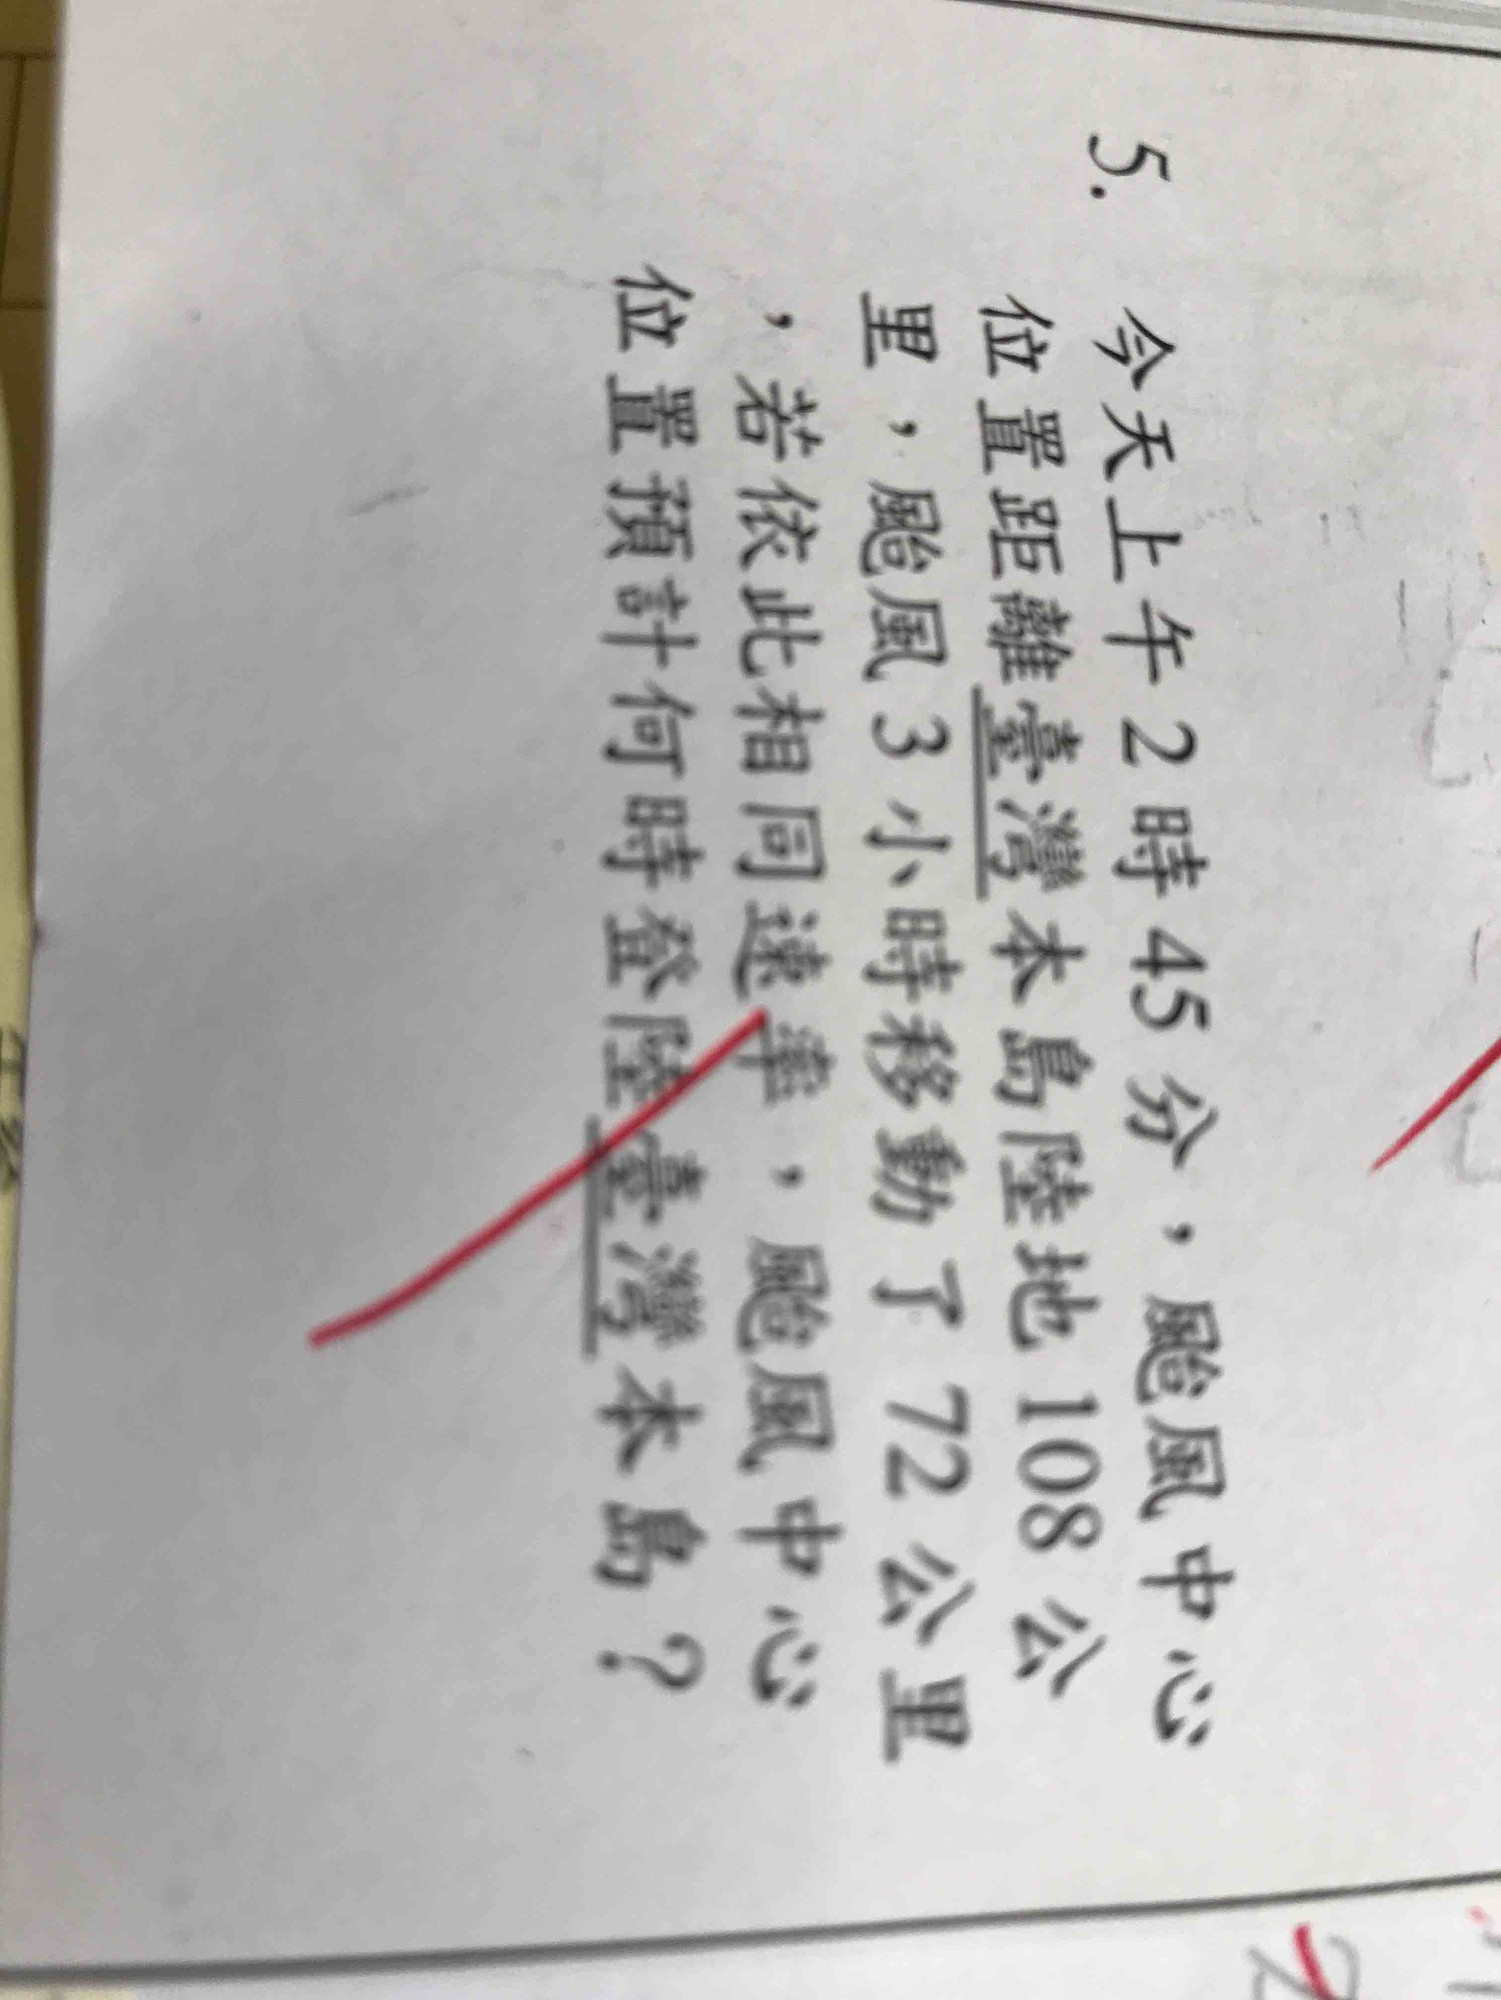 5. 今天上午2時45分，颱風中心
位置距離臺灣本島陸地108公
里，颱風3小時移動了72公里
，若依此相同速率，颱風中心
位置預計何時登陸臺灣本島？